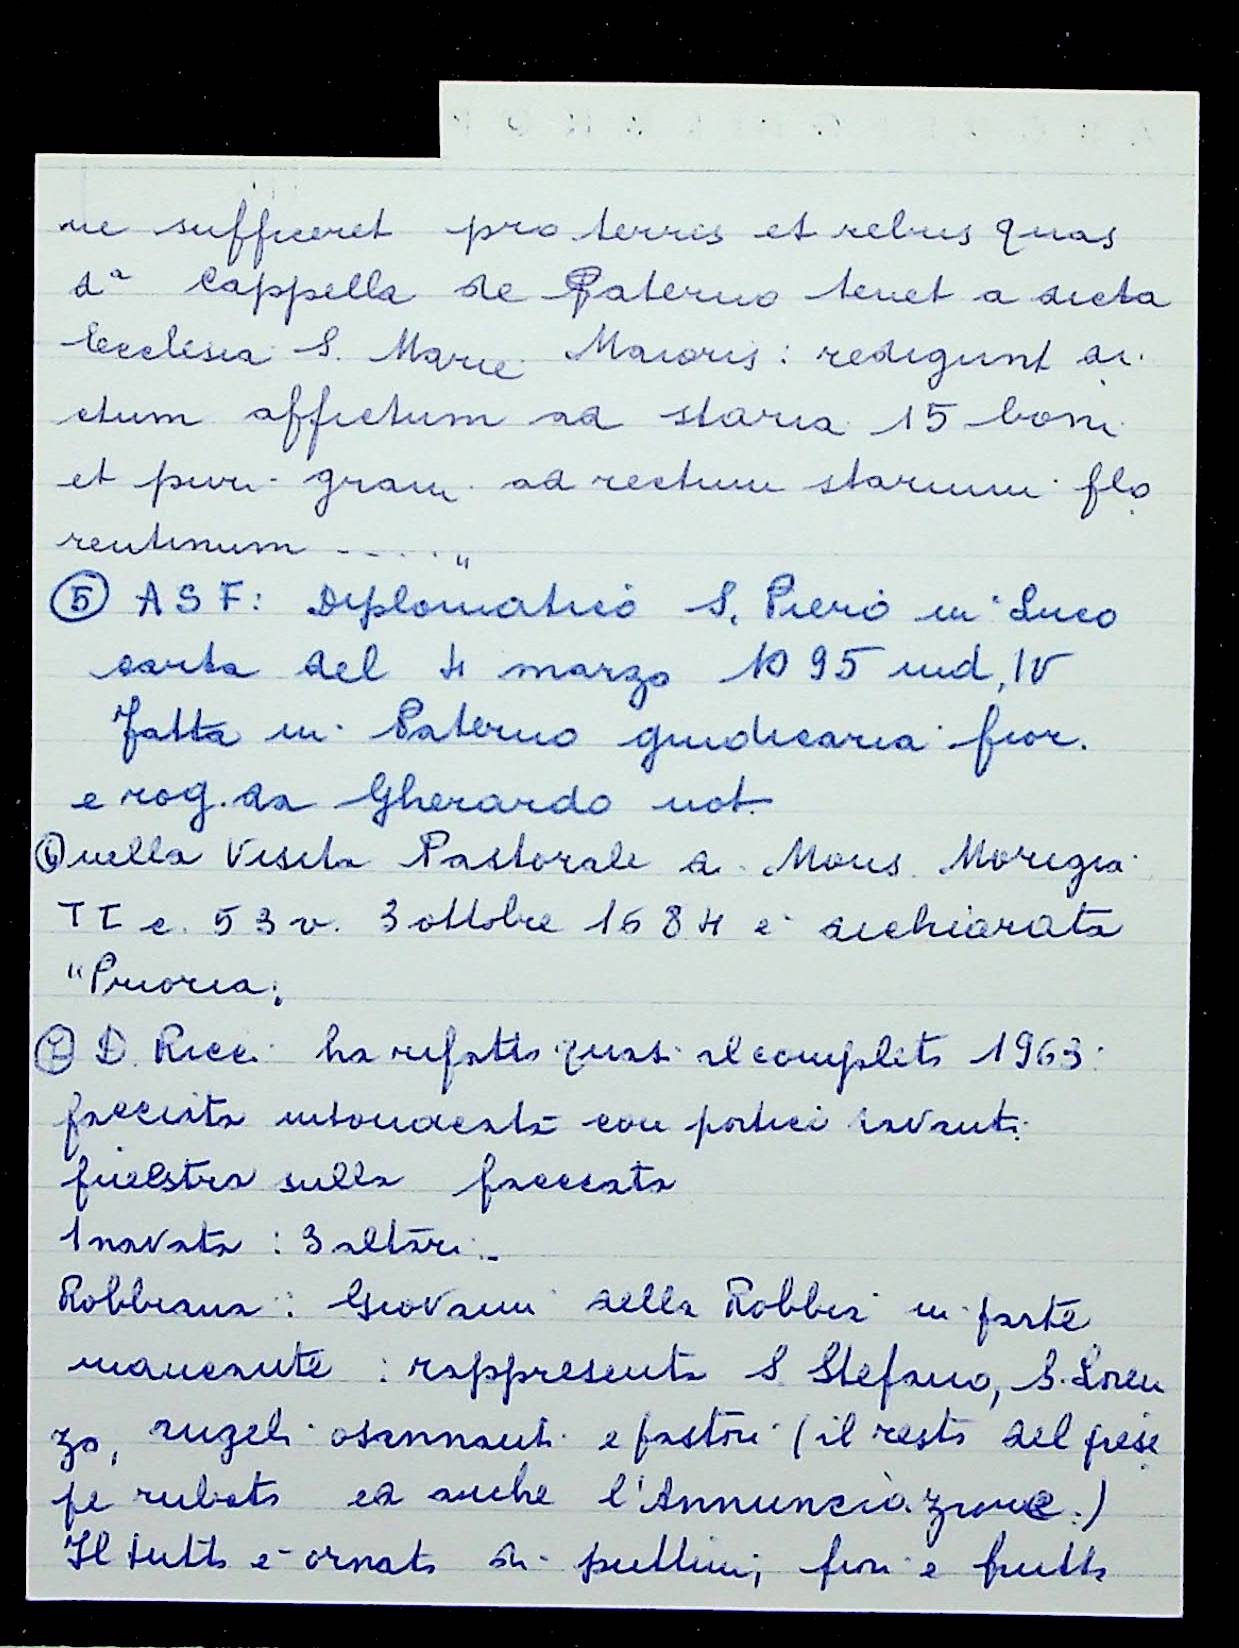 ne sufficeret pro terris et rebus quas
dª Cappella de Paterno tenet a dicta
Ecclesia S. Marie Maioris: redigunt di-
ctum affictum ad staria 15 boni
et puri grani ad rectum starium flo
rentinum - . . . . "
⑤ ASF: Diplomatico S. Piero in Luco
carta del 4 marzo 1095 ind. IV
fatta in Paterno giudicaria fior.
e rog. da Gherardo not.
⑥ nella Visita Pastorale di Mons. Morigia
II c. 53v. 3 ottobre 1684 è dichiarata
"Prioria;
⑦ D. Ricci ha rifatto quasi al completo 1963:
facciata intonacata con portici davanti
finestra sulla facciata
1 navata : 3 altari.-
Robbiana: Giovanni della Robbia in parte
mancante : rappresenta S Stefano, S. Loren
zo, angeli osannanti e pastori (il resto del prese
pe rubato ed anche l'Annunciazione.)
Il tutto è ornato di puttini, fiori e frutta